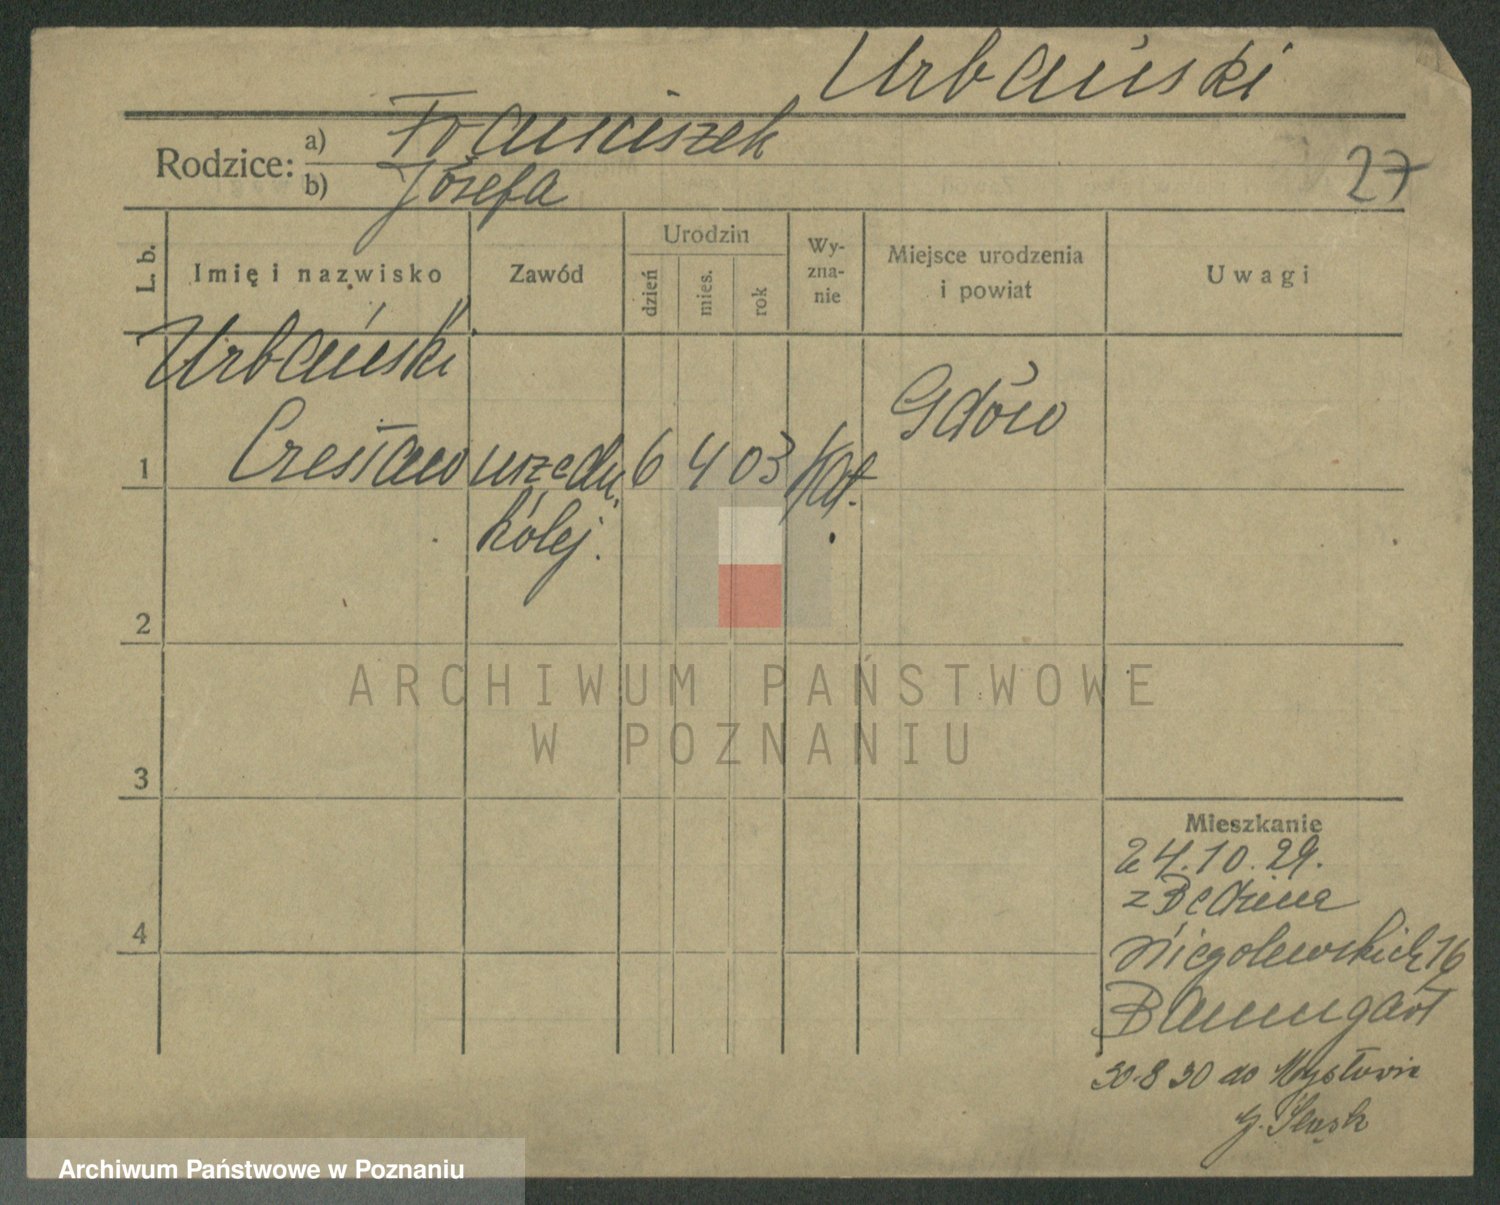 Urbański
Rodzice:
a) Franciszek
b) Józefa
27
L. b.
Imię i nazwisko
Zawód
Urodzin
dzień
mies.
rok
Wy-
zna-
nie
Miejsce urodzenia
i powiat
Uwagi
Urbański
1 Czesław urzędn. 6 4 03 kat. Gdów
kolej.
2
ARCHIWUM PAŃSTWOWE
W POZNANIU
3
Mieszkanie
24.10.29.
z Będzina
4
Niegolewskich 16
Baumgart
30.8 30 do Mysłowic
g. Śląsk
Archiwum Państwowe w Poznaniu